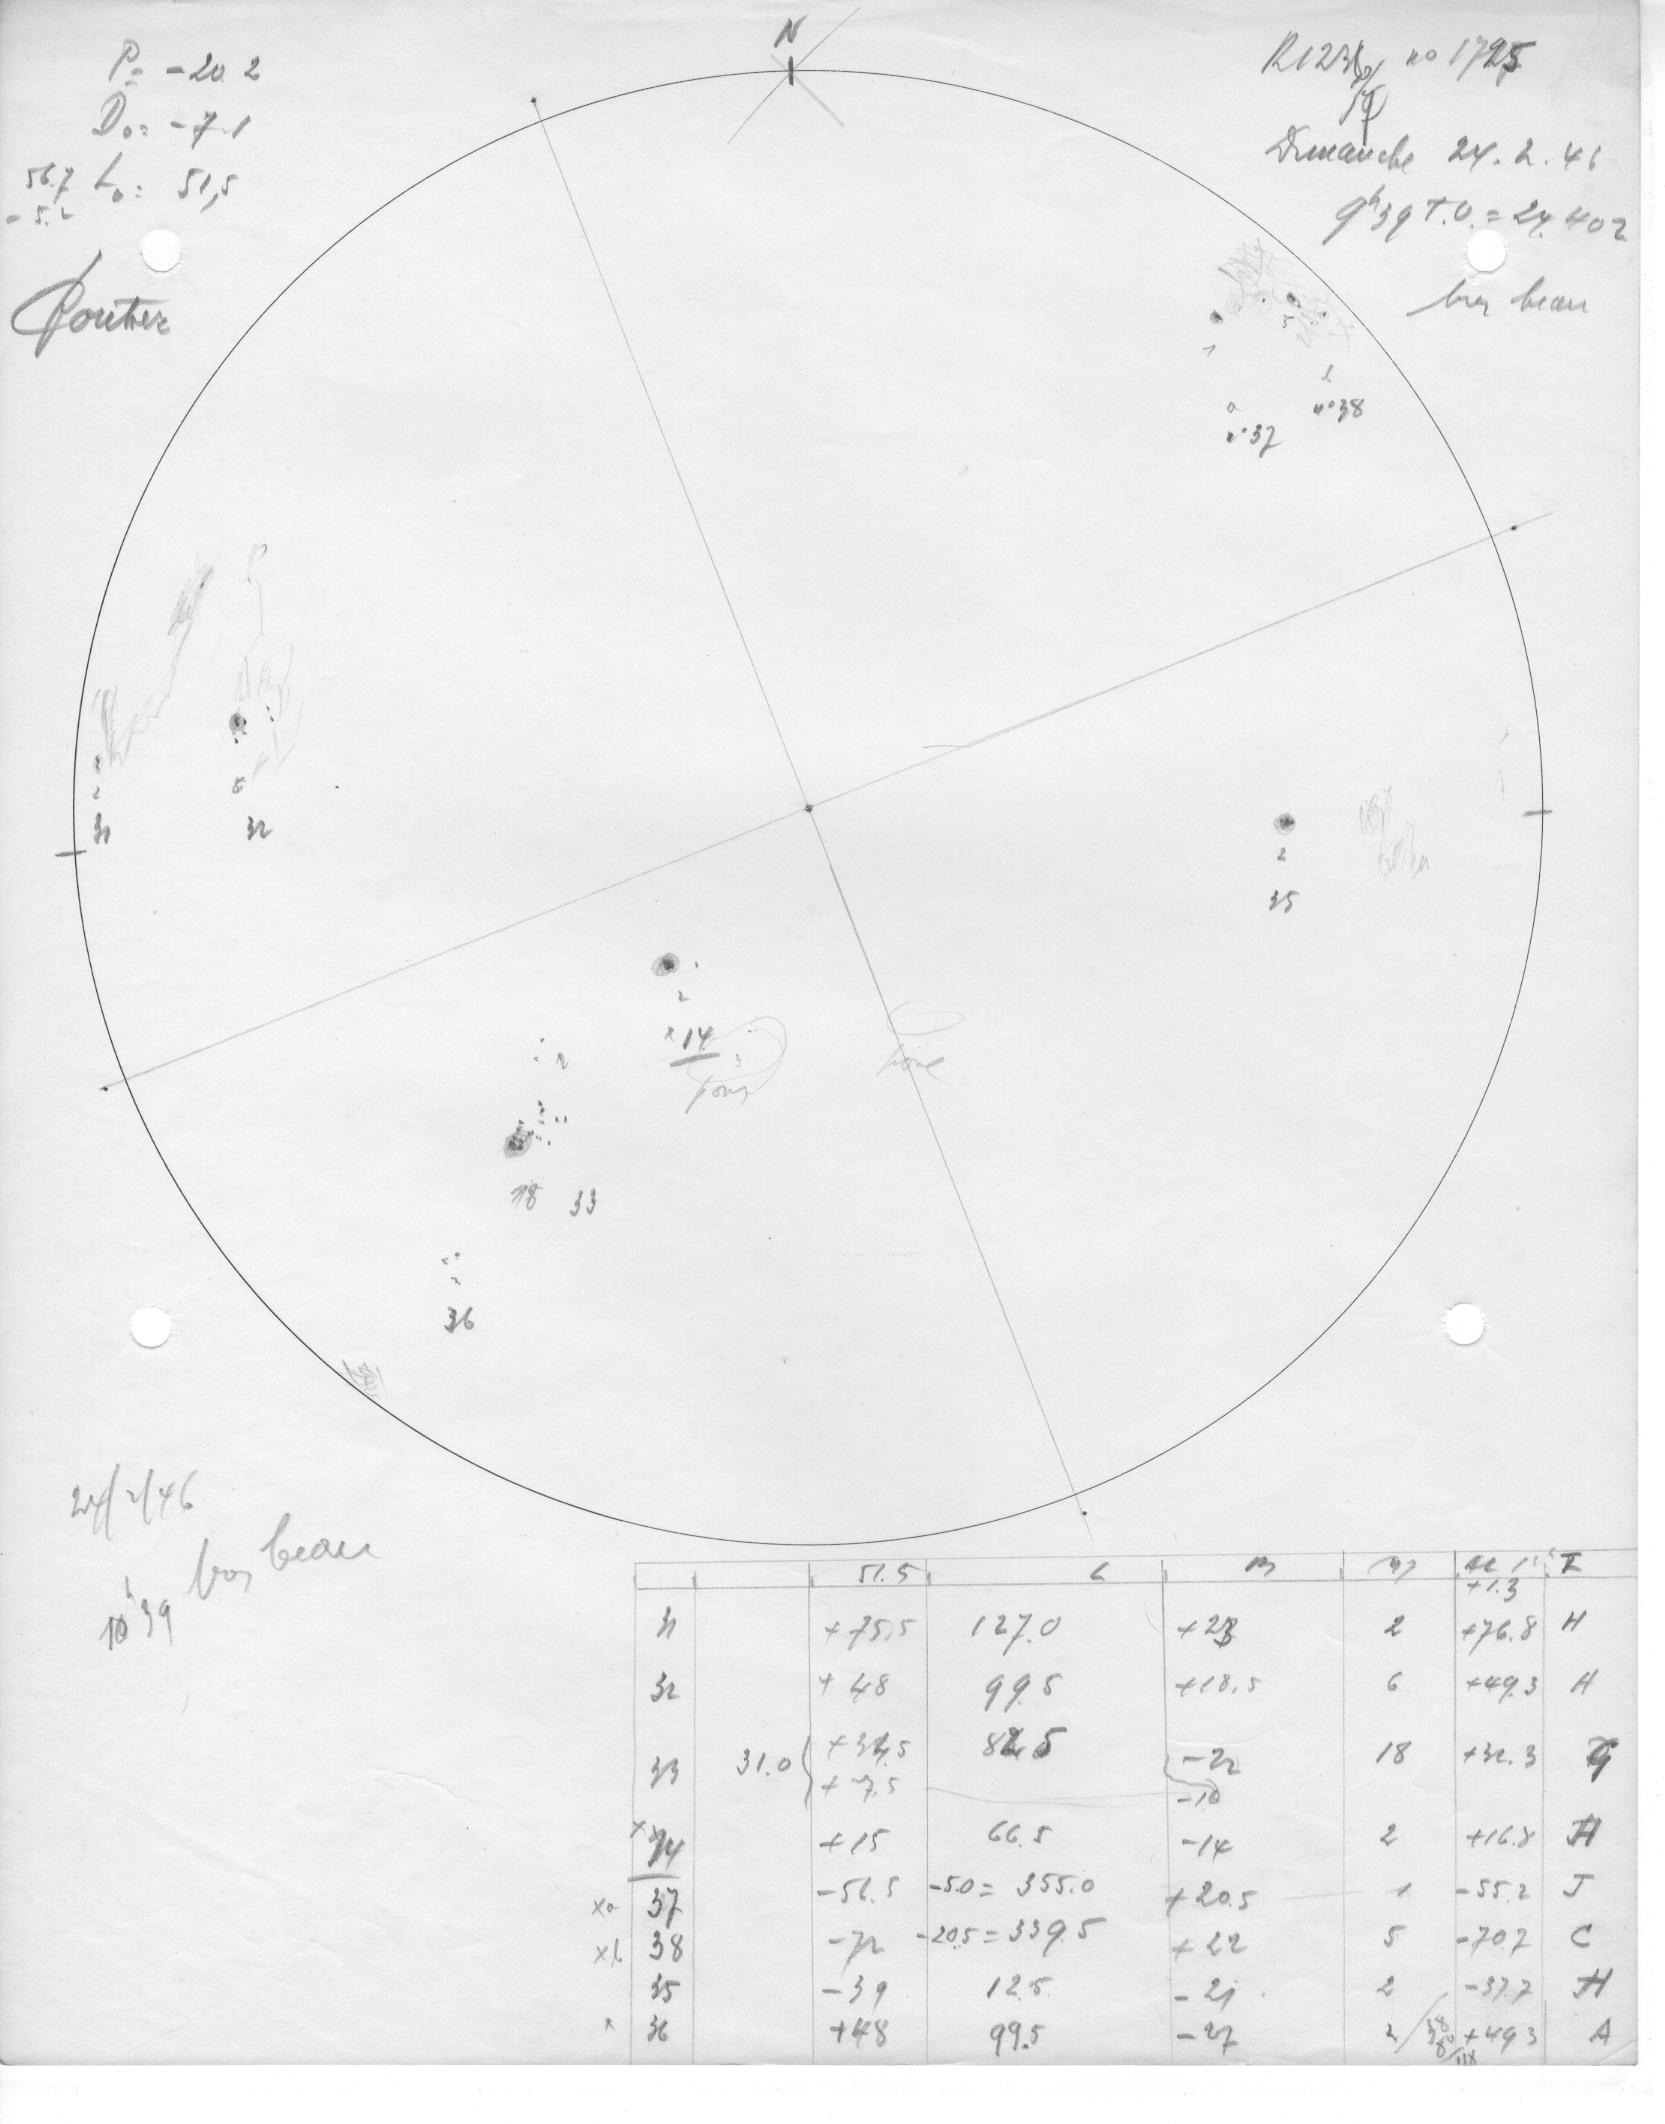 N
P = -20.2
D₀ = -7.1
56.7 L₀ = 51,5
-5.2
no 1725
Dimanche 24.2.46
9h39 T.U. = 24.402
très beau
1
5
a
n°37
b
n°38
2
31
6
32
2
35
2
x 14
2
pore
18 33
2
36
24/2/46
très beau
10h39
51.5 L B
+1.3
31 +75,5 127.0 +23 2 +76.8 H
32 +48 99.5 +18.5 6 +49.3 H
33 31.0 { -22 18 +32.3 G
+7.5 -10
x 14 +15 66.5 -14 2 +16.8 H
xa 37 -56.5 -5.0 = 355.0 +20.5 1 -55.2 J
xb 38 -72 -20.5 = 339.5 +22 5 -70.7 C
35 -39 12.5 -21 2 -37.7 H
x 36 +48 99.5 -27 2 +49.3 A